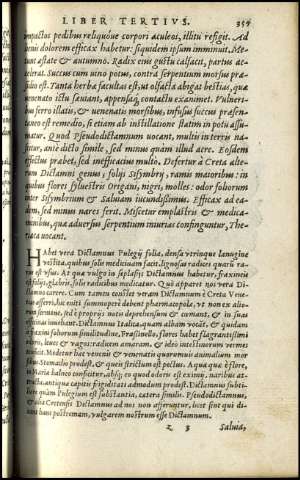 LIBER TERTIVS. 357
impactos pedibus reliquoue corpori aculeos, illitu refigit. Ad
lienis dolorem efficax habetur: siquidem ipsum imminuit. Me-
tunt æstate & autumno. Radix eius gustu calfacit, partus ac-
celerat. Succus cum uino potus, contra serpentium morsus præ-
sidio est. Tanta herbæ facultas est, ut olfacta abigat bestias, quæ
uenenato ictu sæuiunt, appensaq; contactu exanimet. Vulneri-
bus ferro illatis, & uenenatis morsibus, infusus succus præsen-
taneo est remedio, si etiam ab instillatione statim in potu assu-
matur. Quod Pseudodictamnum uocant, multis in terris na-
scitur, antè dicto simile, sed minus quàm illud acre. Eosdem
effectus præbet, sed inefficacius multo. Defertur à Creta alte-
rum Dictamni genus, folijs Sisymbrij, ramis maioribus: in
quibus flores syluestris Origani, nigri, molles: odor foliorum
inter Sisymbrium & Saluiam iucundissimus. Efficax ad ea-
dem, sed minus nares ferit. Miscetur emplastris & medica-
minibus, quæ aduersus serpentium iniurias confinguntur, The-
riaca uocant.
Habet vera Dictamnus Pulegij folia, densa vtrinque lanugine
vestita, quibus solis medicinam facit. lignosas radices quarū ra-
rus est vsus. At qua vulgo in seplasijs Dictamnus habetur, fraxineis
est folijs, glabris, solis radicibus medicatur. Qui apparet non vera Di-
ctamnus. Cum tamen constet veram Dictamnum è Creta Vene-
tias afferri, hic eniti summoperè debent pharmacopolæ, vt non ex alio-
rum semine, sed è proprijs notis deprehensum & emant, & in suas
officinas inuehant. Dictamnus Italica, quam albam vocāt, & quidam
à Fraxini foliorum similitudine, Fraxinella, flores habet flagrantissimi
odoris, leues & vagos: radicem amaram, & ideò intestinorum vermes
Medetur hæc venenis & venenatis quorumuis animalium mor
sibus. Stomacho prodest, & quæis strictum est pectus. Aqua quæ è flore,
in Maria balneo conficitur, abijt, eo quod odoris est eximij, naribus at-
tracta, antiqua capitis frigiditati admodum prodest. Dictamnus subti-
liore quàm Pulegium est substantia, cætera similis. Pseudodictamnus,
& alia Cretensis Dictamnus ad nos non afferuntur, licet sint qui di-
cant hanc postremam, vulgarem nostrum esse Dictamnum.
z 3 Saluia,